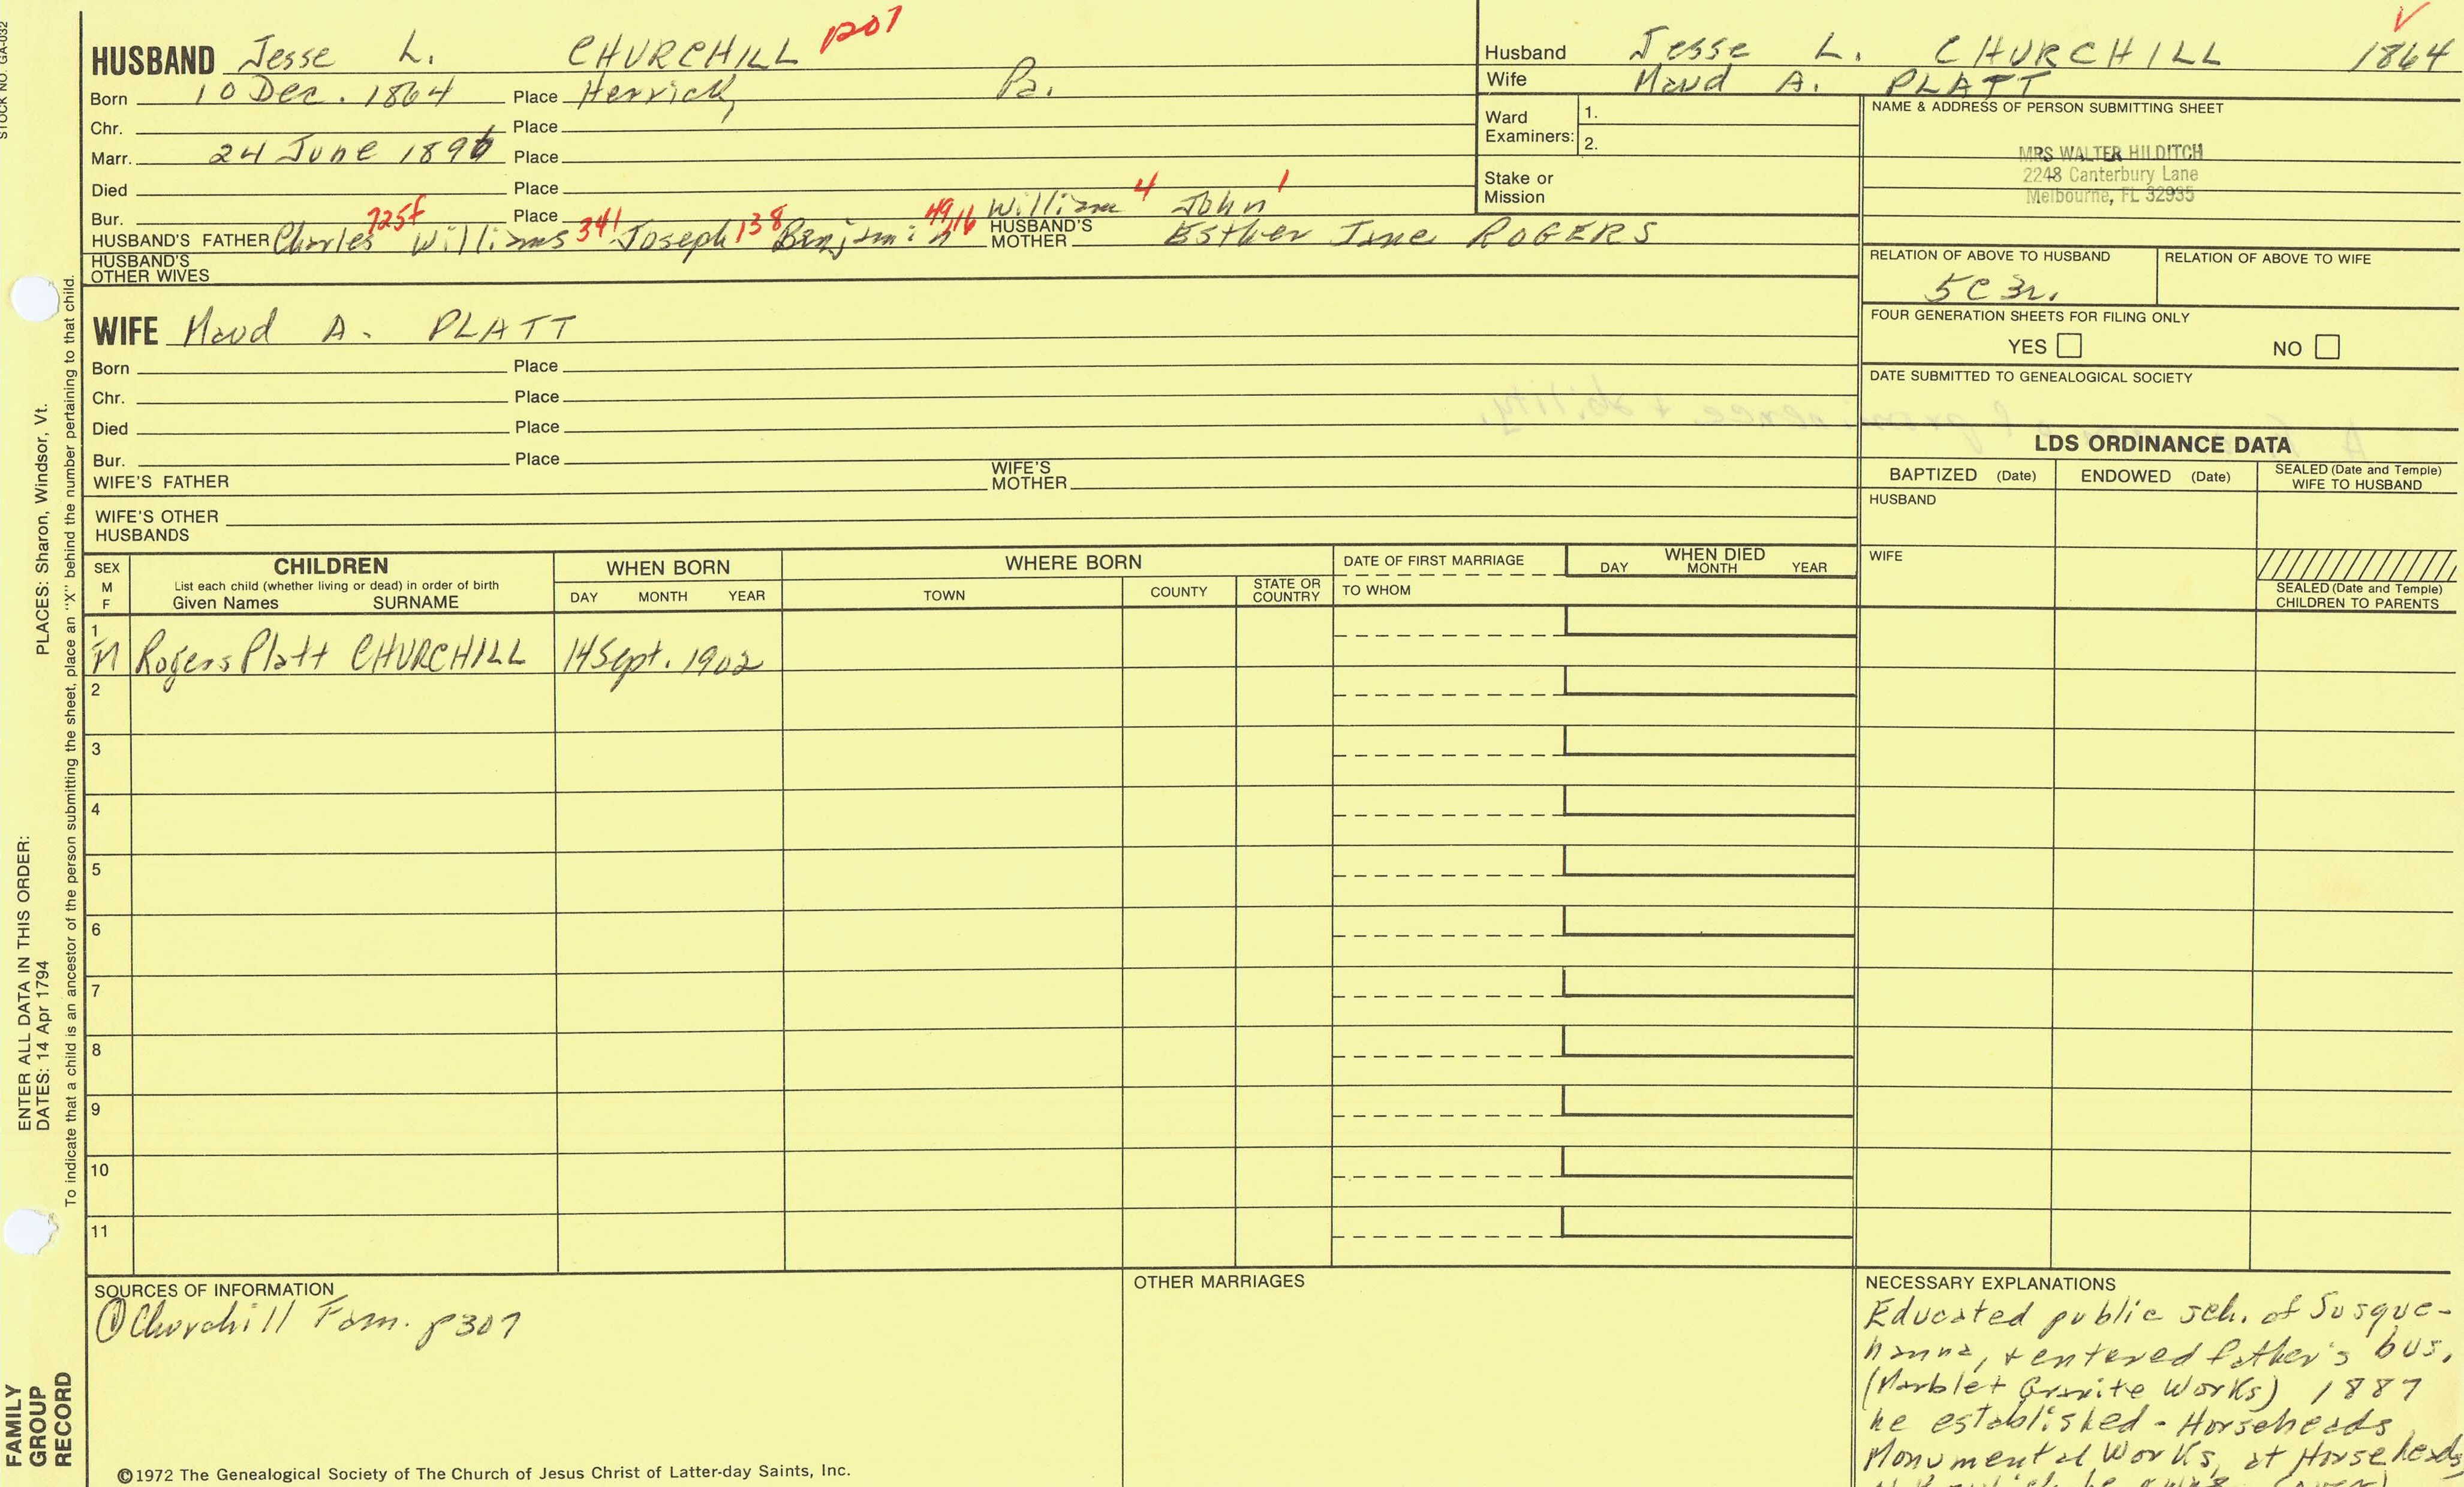 STOCK NO. GA-032
HUSBAND Jesse L. CHURCHILL
Born 10 Dec. 1864 Place Herrick, Pa.
Chr. Place
Marr. 24 June 189 Place
Died Place
Bur. Place
725f 341 138 William 4 John 1
HUSBAND'S FATHER Charles Williams Joseph Benjamin HUSBAND'S MOTHER Esther Jane ROGERS
HUSBAND'S OTHER WIVES
WIFE Maud A. PLATT
Born Place
Chr. Place
Died Place
Bur. Place
WIFE'S FATHER WIFE'S MOTHER
WIFE'S OTHER HUSBANDS
Husband Jesse L. CHURCHILL 1864
Wife Maud A. PLATT
Ward Examiners: 1.
2.
Stake or Mission
NAME & ADDRESS OF PERSON SUBMITTING SHEET
MRS WALTER HILDITCH
2248 Canterbury Lane
Melbourne, FL 32935
RELATION OF ABOVE TO HUSBAND RELATION OF ABOVE TO WIFE
5C 3r.
FOUR GENERATION SHEETS FOR FILING ONLY
YES NO
DATE SUBMITTED TO GENEALOGICAL SOCIETY
LDS ORDINANCE DATA
BAPTIZED (Date) ENDOWED (Date) SEALED (Date and Temple) WIFE TO HUSBAND
HUSBAND
WIFE
SEALED (Date and Temple) CHILDREN TO PARENTS
SEX M F
CHILDREN
List each child (whether living or dead) in order of birth
Given Names SURNAME
WHEN BORN
DAY MONTH YEAR
WHERE BORN
TOWN COUNTY STATE OR COUNTRY
DATE OF FIRST MARRIAGE
TO WHOM
WHEN DIED
DAY MONTH YEAR
1
M Rogers Platt CHURCHILL 14 Sept. 1902
2
3
4
5
6
7
8
9
10
11
SOURCES OF INFORMATION
① Churchill Fam. p307
OTHER MARRIAGES
NECESSARY EXPLANATIONS
Educated public sch. of Susque-
hanna, & entered father's bus.
(Marble & Granite Works) 1887
he established - Horseheads
Monumental Works, at Horseheads
©1972 The Genealogical Society of The Church of Jesus Christ of Latter-day Saints, Inc.
PLACES: Sharon, Windsor, Vt.
To indicate that a child is an ancestor of the person submitting the sheet, place an "X" behind the number pertaining to that child.
ENTER ALL DATA IN THIS ORDER:
DATES: 14 Apr 1794
FAMILY
GROUP
RECORD